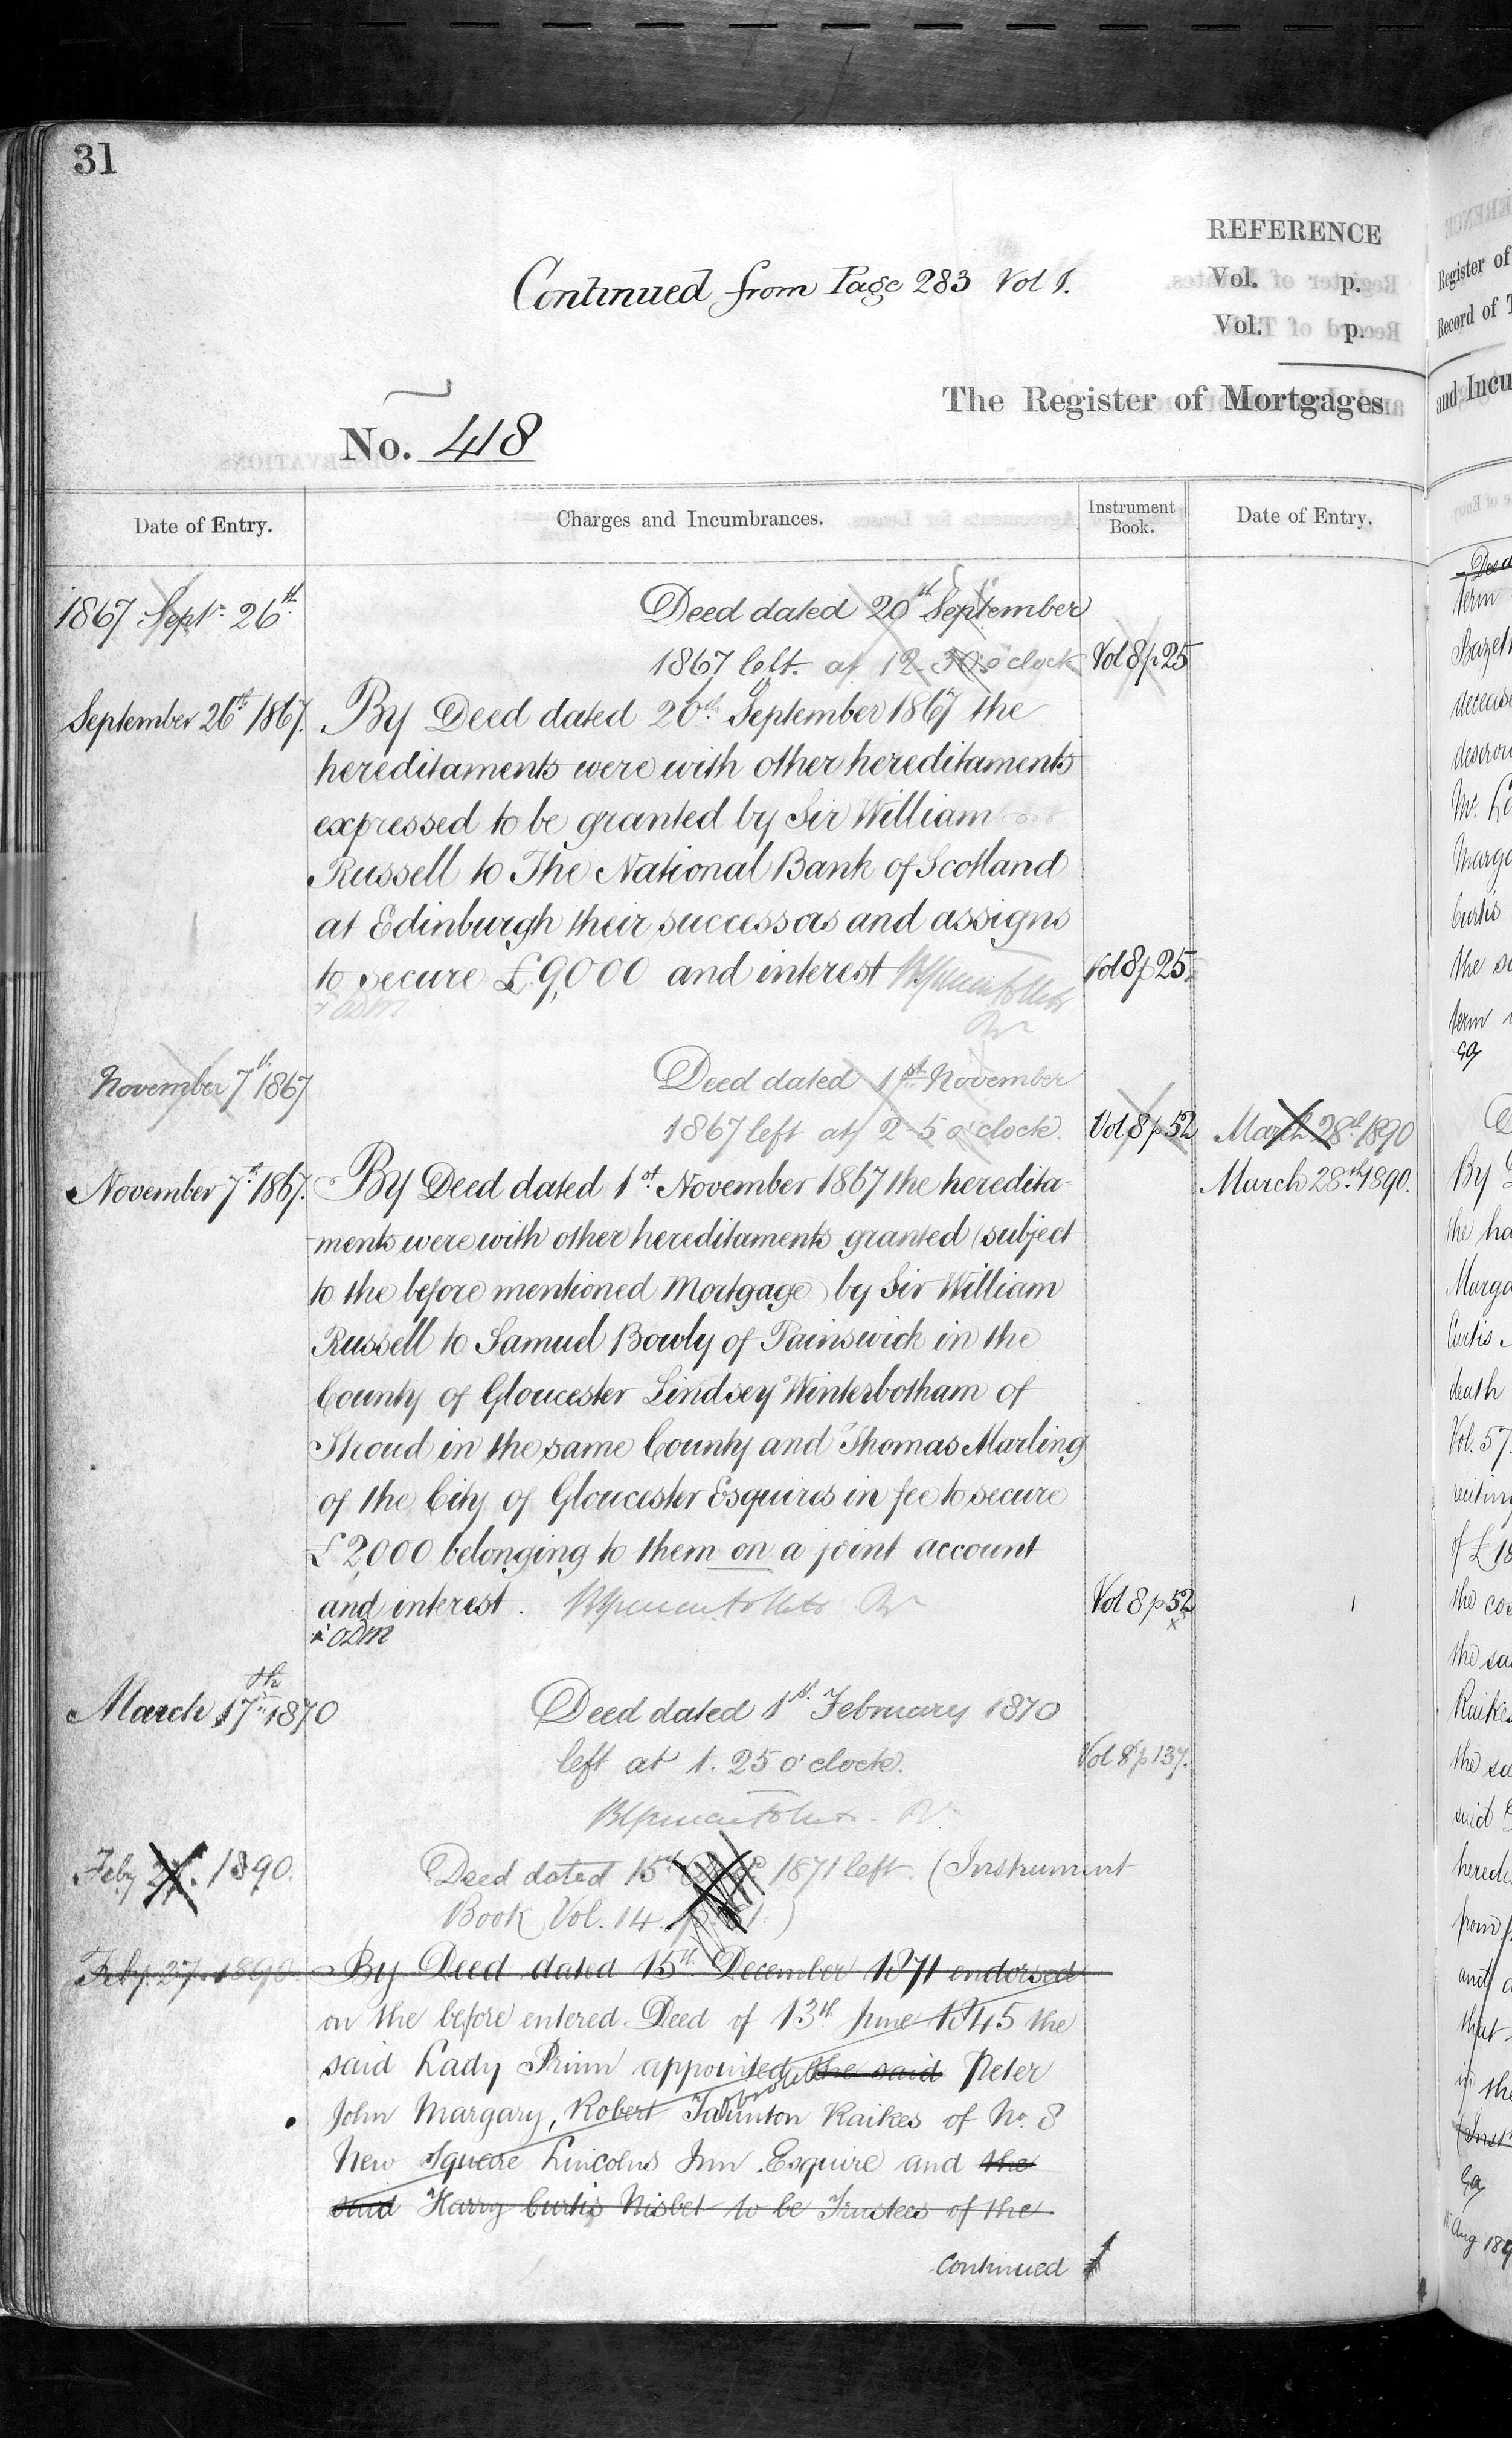 31
REFERENCE
Continued from Page 283 Vol 1.
Vol. p.
Vol. p.
The Register of Mortgages
No. 418
Date of Entry.
Charges and Incumbrances.
Instrument Book.
Date of Entry.
1867 Sept. 26th
Deed dated 20th September
1867 left at 12-30 o'clock Vol 8 p 25
September 26th 1867. By Deed dated 20th September 1867 the
hereditaments were with other hereditaments
expressed to be granted by Sir William
Russell to The National Bank of Scotland
at Edinburgh their successors and assigns
to secure £9,000 and interest Vol 8 p 25
November 7th 1867 Deed dated 1st November
1867 left at 2-5 o'clock. Vol 8 p 52 March 28th 1890
November 7th 1867. By Deed dated 1st November 1867 the heredita- March 28th 1890.
ments were with other hereditaments granted (subject
to the before mentioned Mortgage) by Sir William
Russell to Samuel Bowly of Painswick in the
County of Gloucester Lindsey Winterbotham of
Stroud in the same County and Thomas Marling
of the City of Gloucester Esquires in fee to secure
£2,000 belonging to them on a joint account
and interest. Vol 8 p 52
March 17th 1870 Deed dated 1st February 1870
left at 1.25 o'clock. Vol 8 p 137.
Feby 1890. Deed dated 15th 1871 left. (Instrument
Book Vol. 14 )
Feby. 27. 1890. By Deed dated 15th December 1871 endorsed
on the before entered Deed of 13th June 1845 the
said Lady Prinn appointed the said Peter
John Margary, Robert Taunton Raikes of No. 8
New Square Lincolns Inn Esquire and the
said Harry Curtis Nisbet to be Trustees of the
Continued
Register of
Record of
and Incu
term
the
term
By
the
death
Vol. 57.
of £18
the
the
the
said
from
and
that
Aug 189